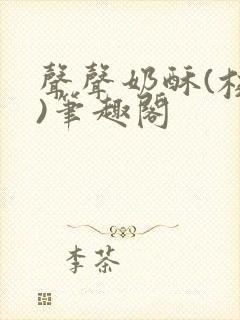 聲聲奶酥(校
)筆趣閣
李茶